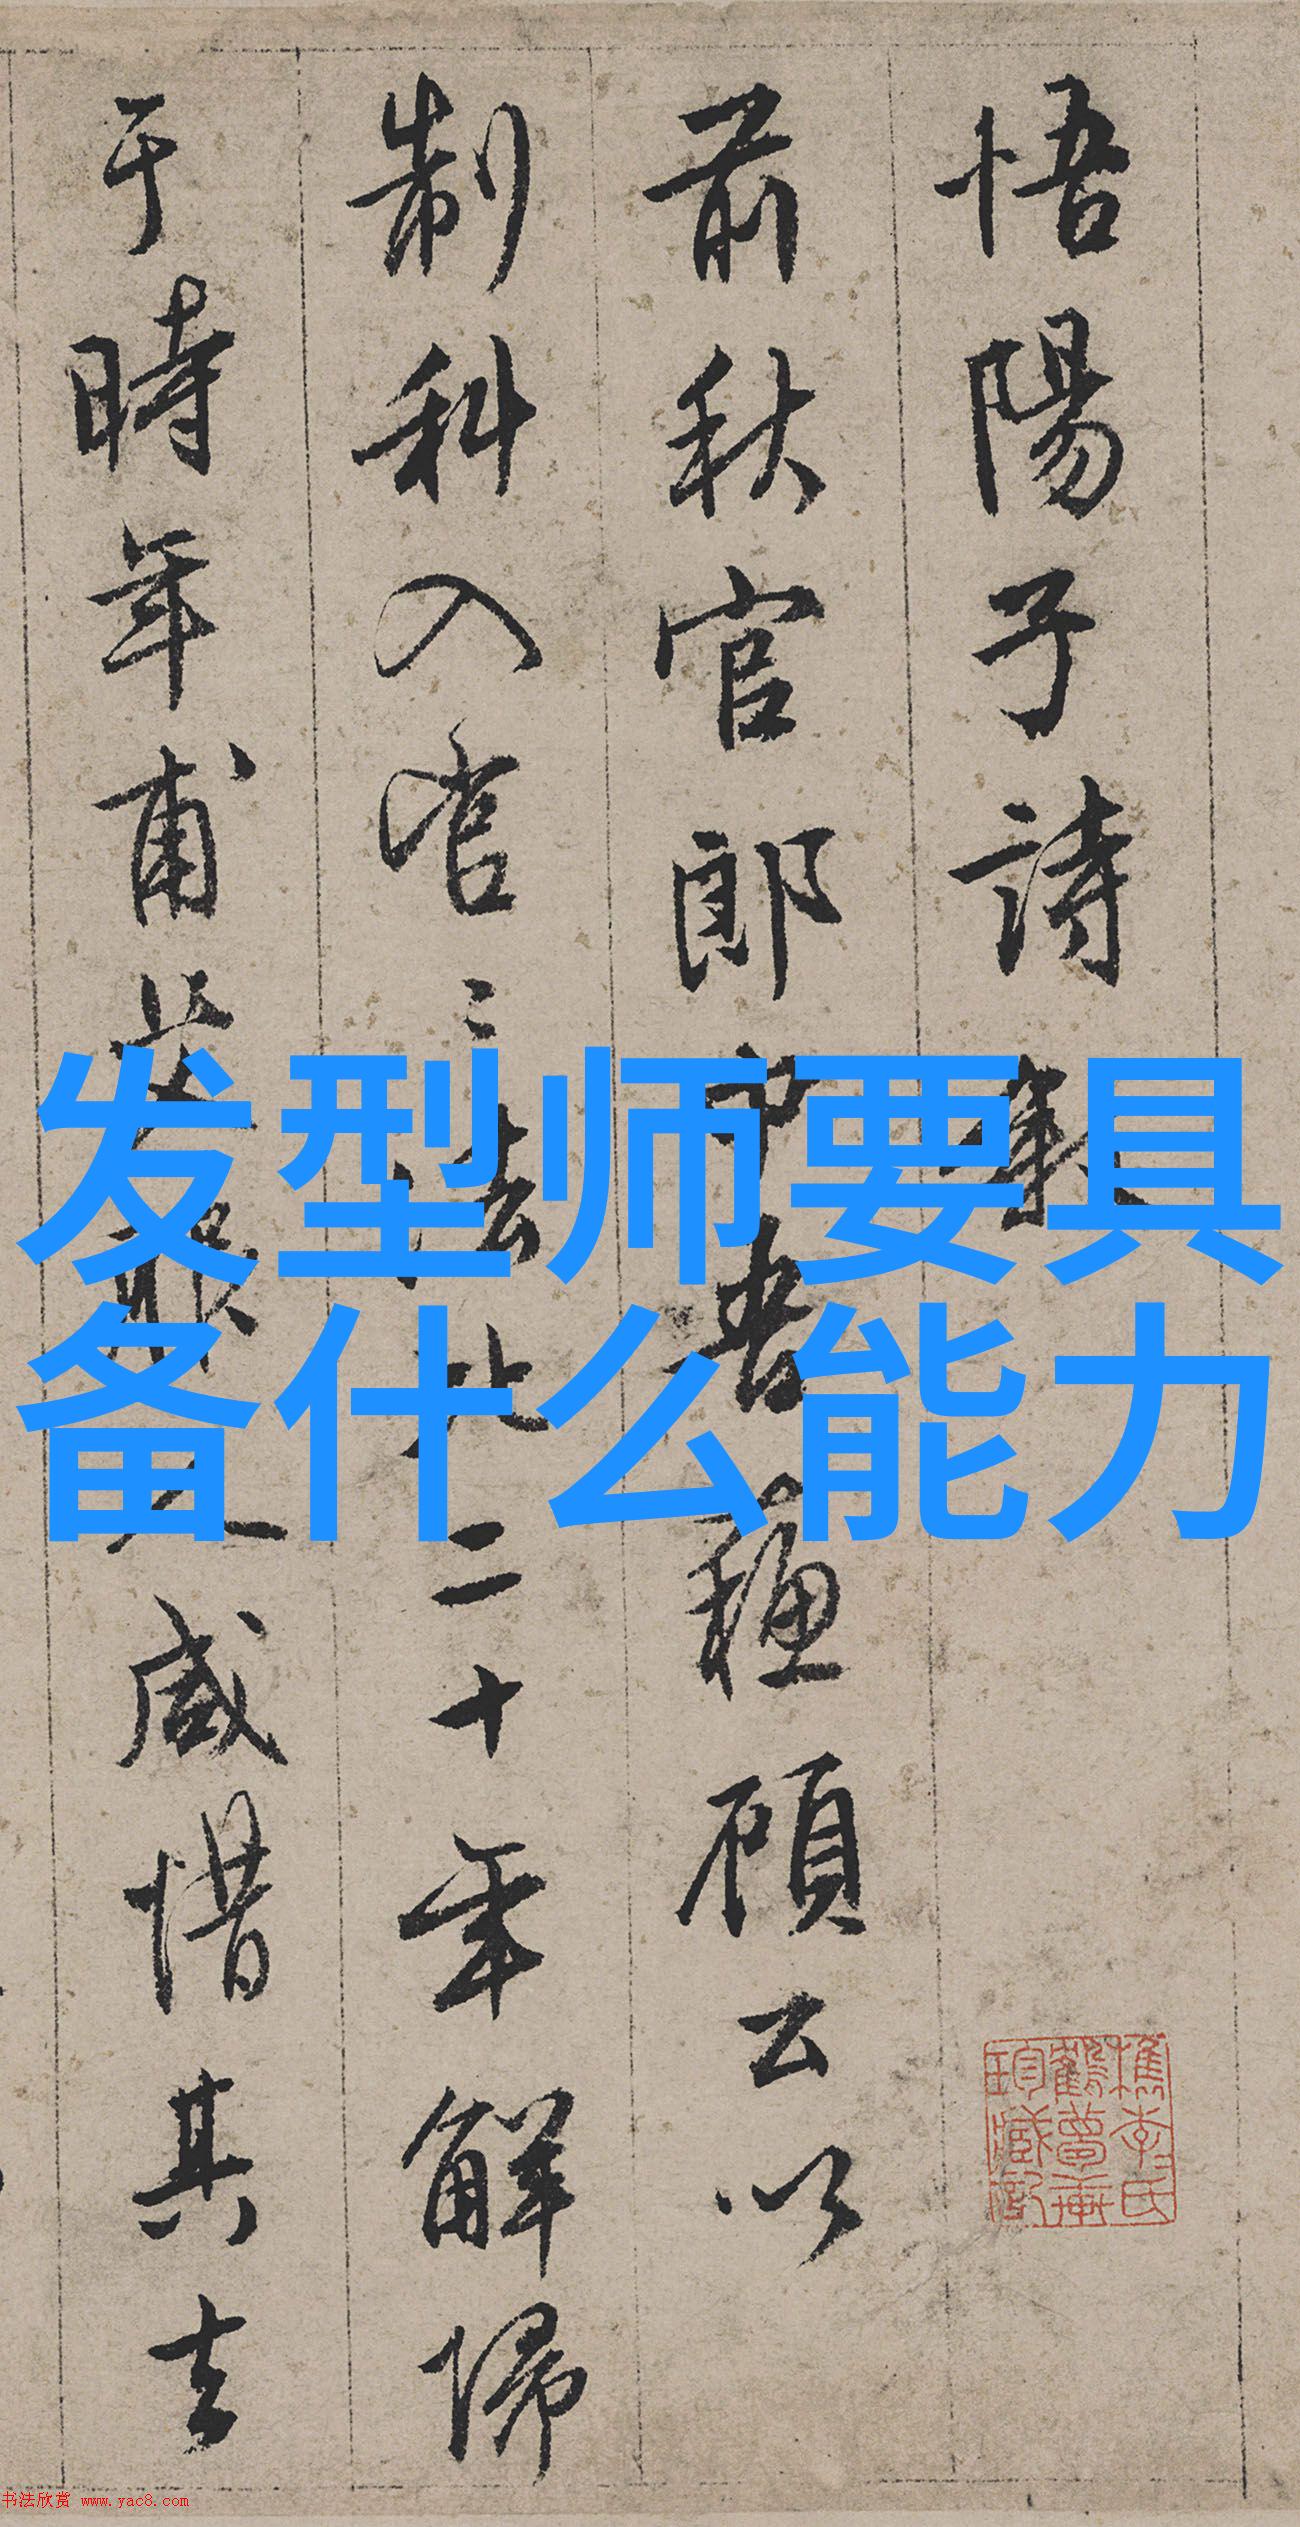 悟陽子詩集
前秋官郎中吾蘓顧公以
制科入官
法比二十年解歸
于時年甫
咸惜其去
发型师要具
备什么能力
书法欣赏 www.yac8.com